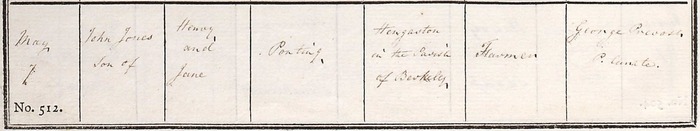 May
7
No. 512.
John Jones
son of
Henry
and
Jane
Ponting
Hengaston
in the Parish
of Berkeley
Farmer
George Prevost
P. Curate.